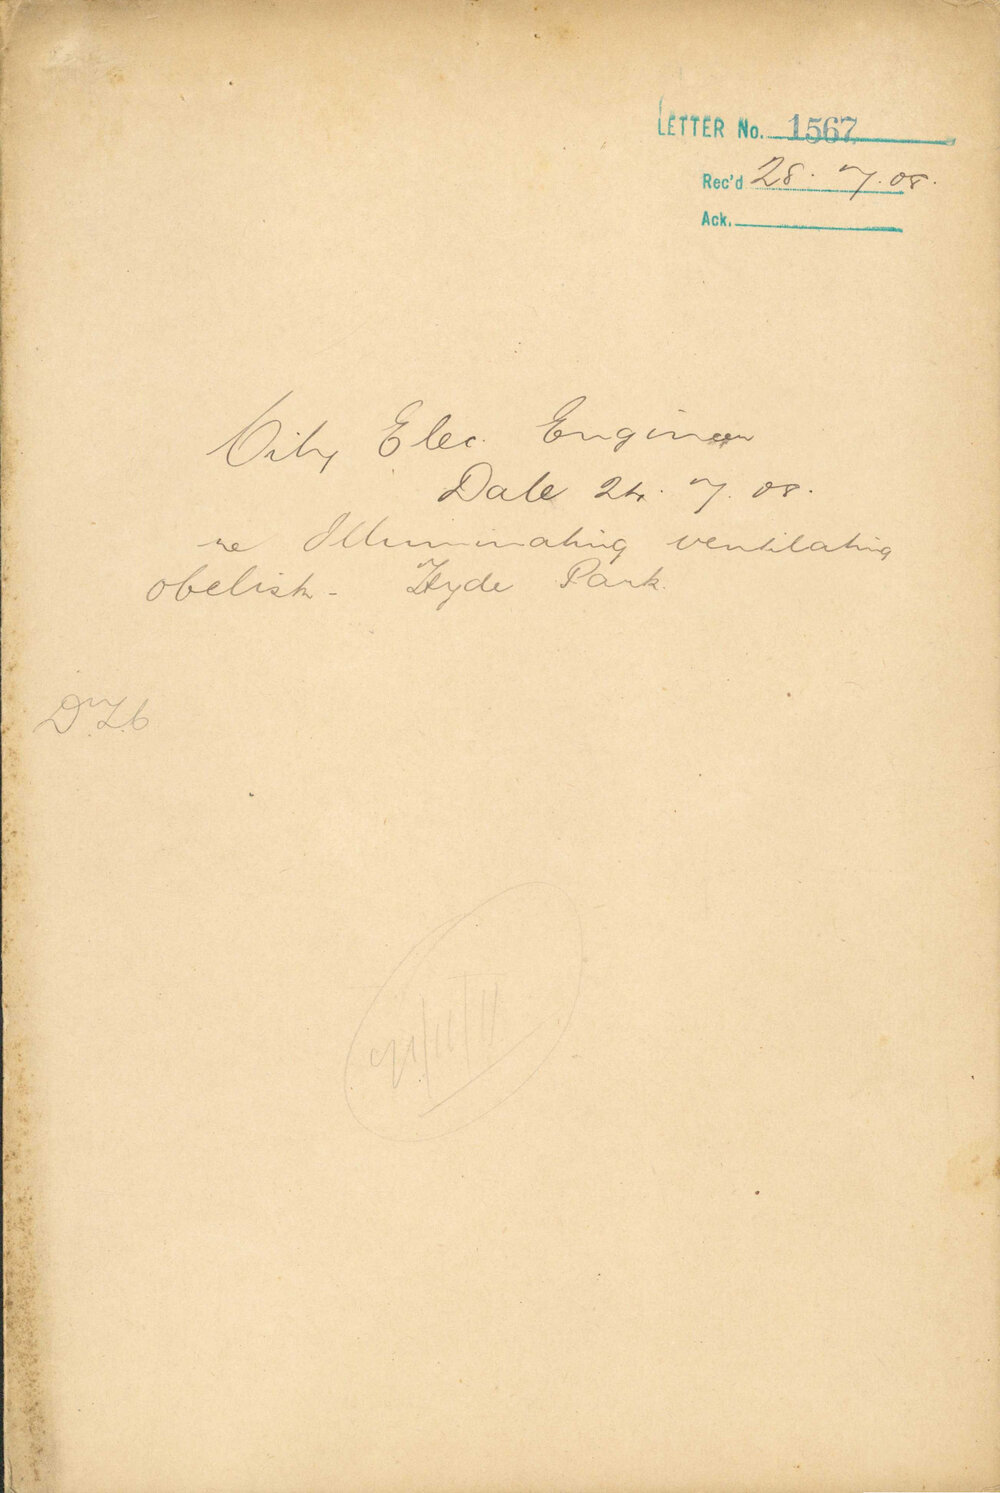 LETTER No. 1567
Rec'd 28. 7. 08.
Ack.
City Elec. Engineer
Date 24. 7. 08.
re Illuminating ventilating
obelisk - Hyde Park.